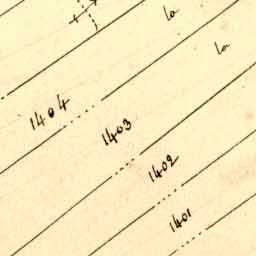 la
la
1404
1403
1402
1401